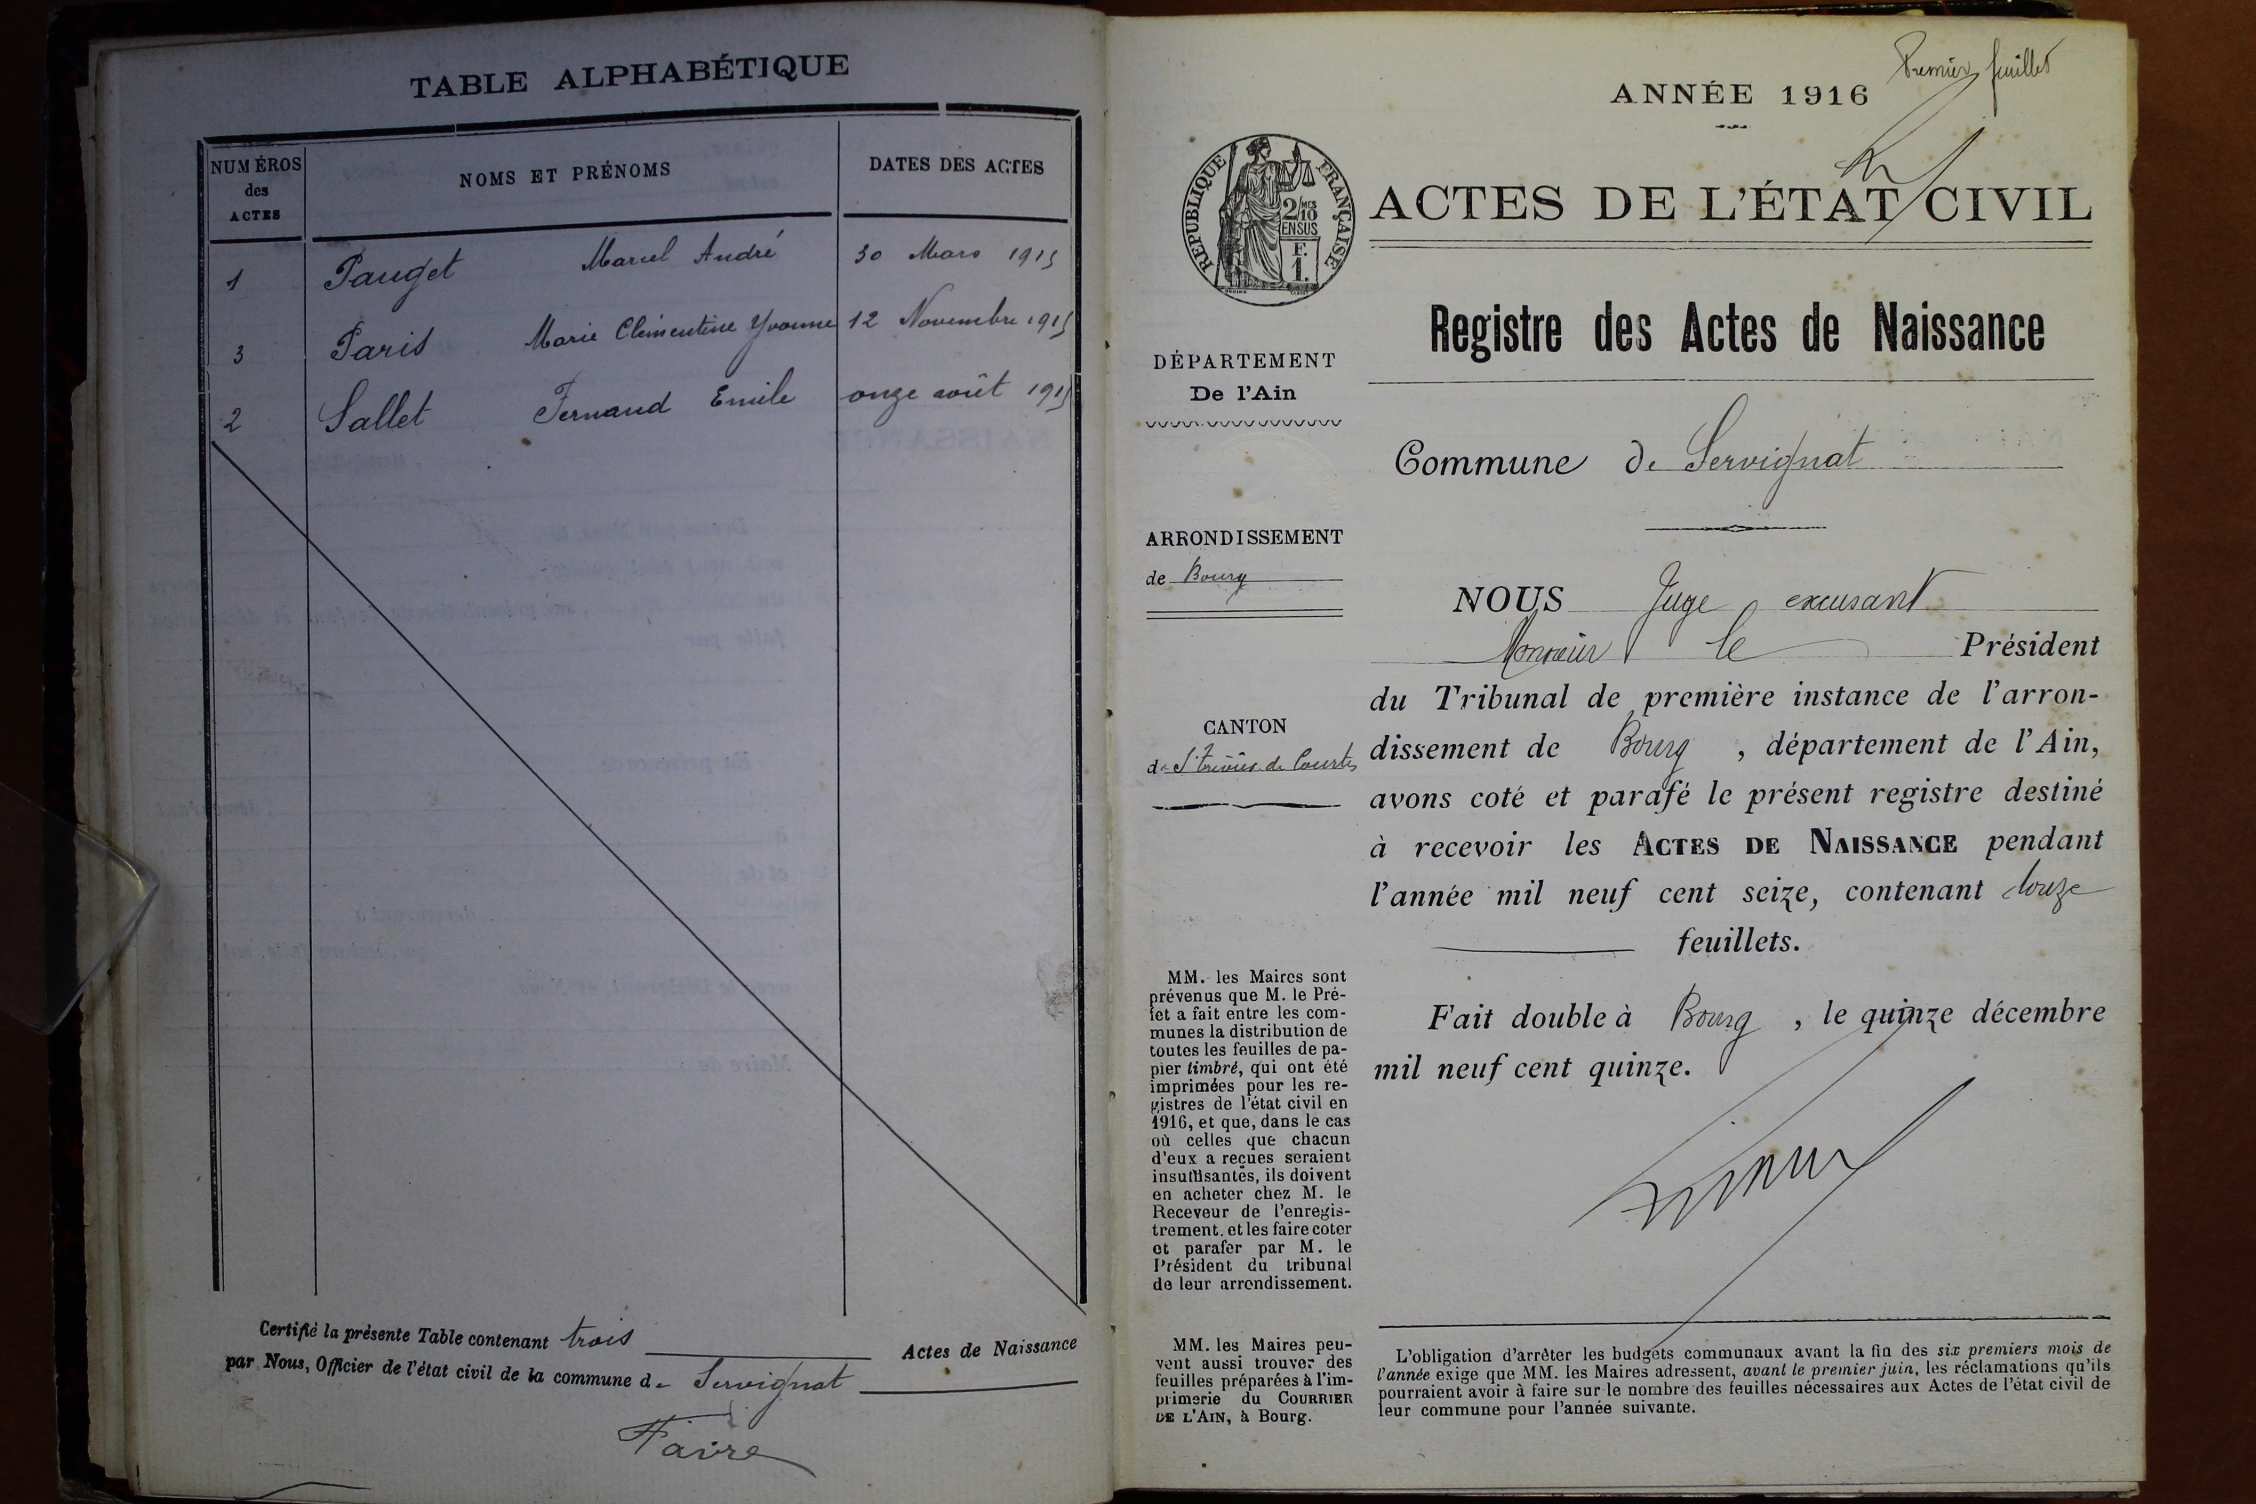 TABLE ALPHABÉTIQUE
NUMÉROS
des
ACTES
NOMS ET PRÉNOMS
DATES DES ACTES
1 Pauget Marcel André 30 Mars 1915
3 Paris Marie Clémentine Yvonne 12 Novembre 1915
2 Sallet Fernand Emile onze août 1915
Certifié la présente Table contenant trois Actes de Naissance
par Nous, Officier de l'état civil de la commune de Servignat
Favre
Premier feuillet
ANNÉE 1916
RÉPUBLIQUE FRANÇAISE
2/10 MES
EN SUS
F.
1.
ACTES DE L'ÉTAT CIVIL
Registre des Actes de Naissance
DÉPARTEMENT
De l'Ain
Commune de Servignat
ARRONDISSEMENT
de Bourg
CANTON
de St Trivier de Courtes
NOUS Juge excusant
Monsieur le Président
du Tribunal de première instance de l'arron-
dissement de Bourg, département de l'Ain,
avons coté et parafé le présent registre destiné
à recevoir les ACTES DE NAISSANCE pendant
l'année mil neuf cent seize, contenant douze
feuillets.
Fait double à Bourg, le quinze décembre
mil neuf cent quinze.
MM. les Maires sont
prévenus que M. le Pré-
fet a fait entre les com-
munes la distribution de
toutes les feuilles de pa-
pier timbré, qui ont été
imprimées pour les re-
gistres de l'état civil en
1916, et que, dans le cas
où celles que chacun
d'eux a reçues seraient
insuffisantes, ils doivent
en acheter chez M. le
Receveur de l'enregis-
trement, et les faire coter
et parafer par M. le
Président du tribunal
de leur arrondissement.
MM. les Maires peu-
vent aussi trouver des
feuilles préparées à l'im-
primerie du COURRIER
DE L'AIN, à Bourg.
L'obligation d'arrêter les budgets communaux avant la fin des six premiers mois de
l'année exige que MM. les Maires adressent, avant le premier juin, les réclamations qu'ils
pourraient avoir à faire sur le nombre des feuilles nécessaires aux Actes de l'état civil de
leur commune pour l'année suivante.